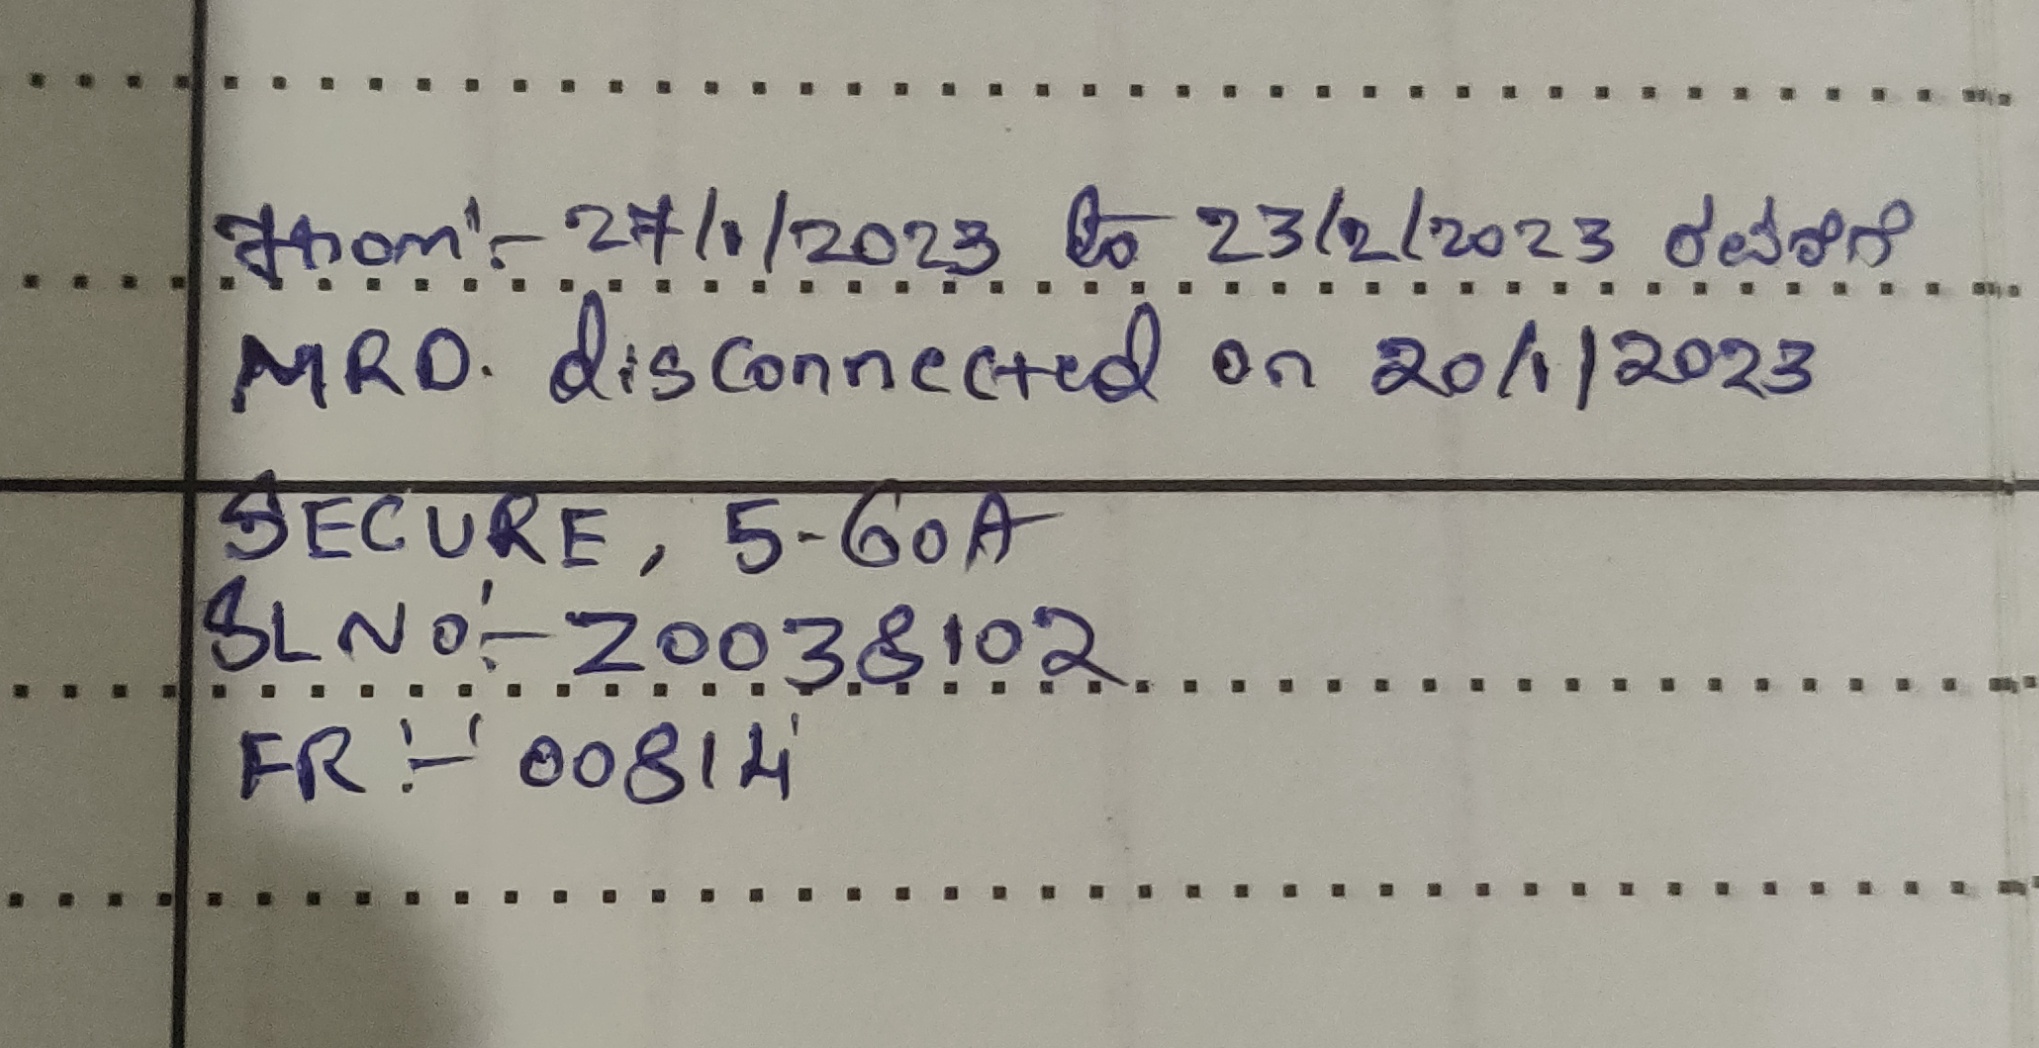 From:- 27/1/2023 to 23/2/2023 ರವರೆಗೆ
MRD. disconnected on 20/1/2023
SECURE, 5-60A
SLNO:- Z0038102
FR:- 00814